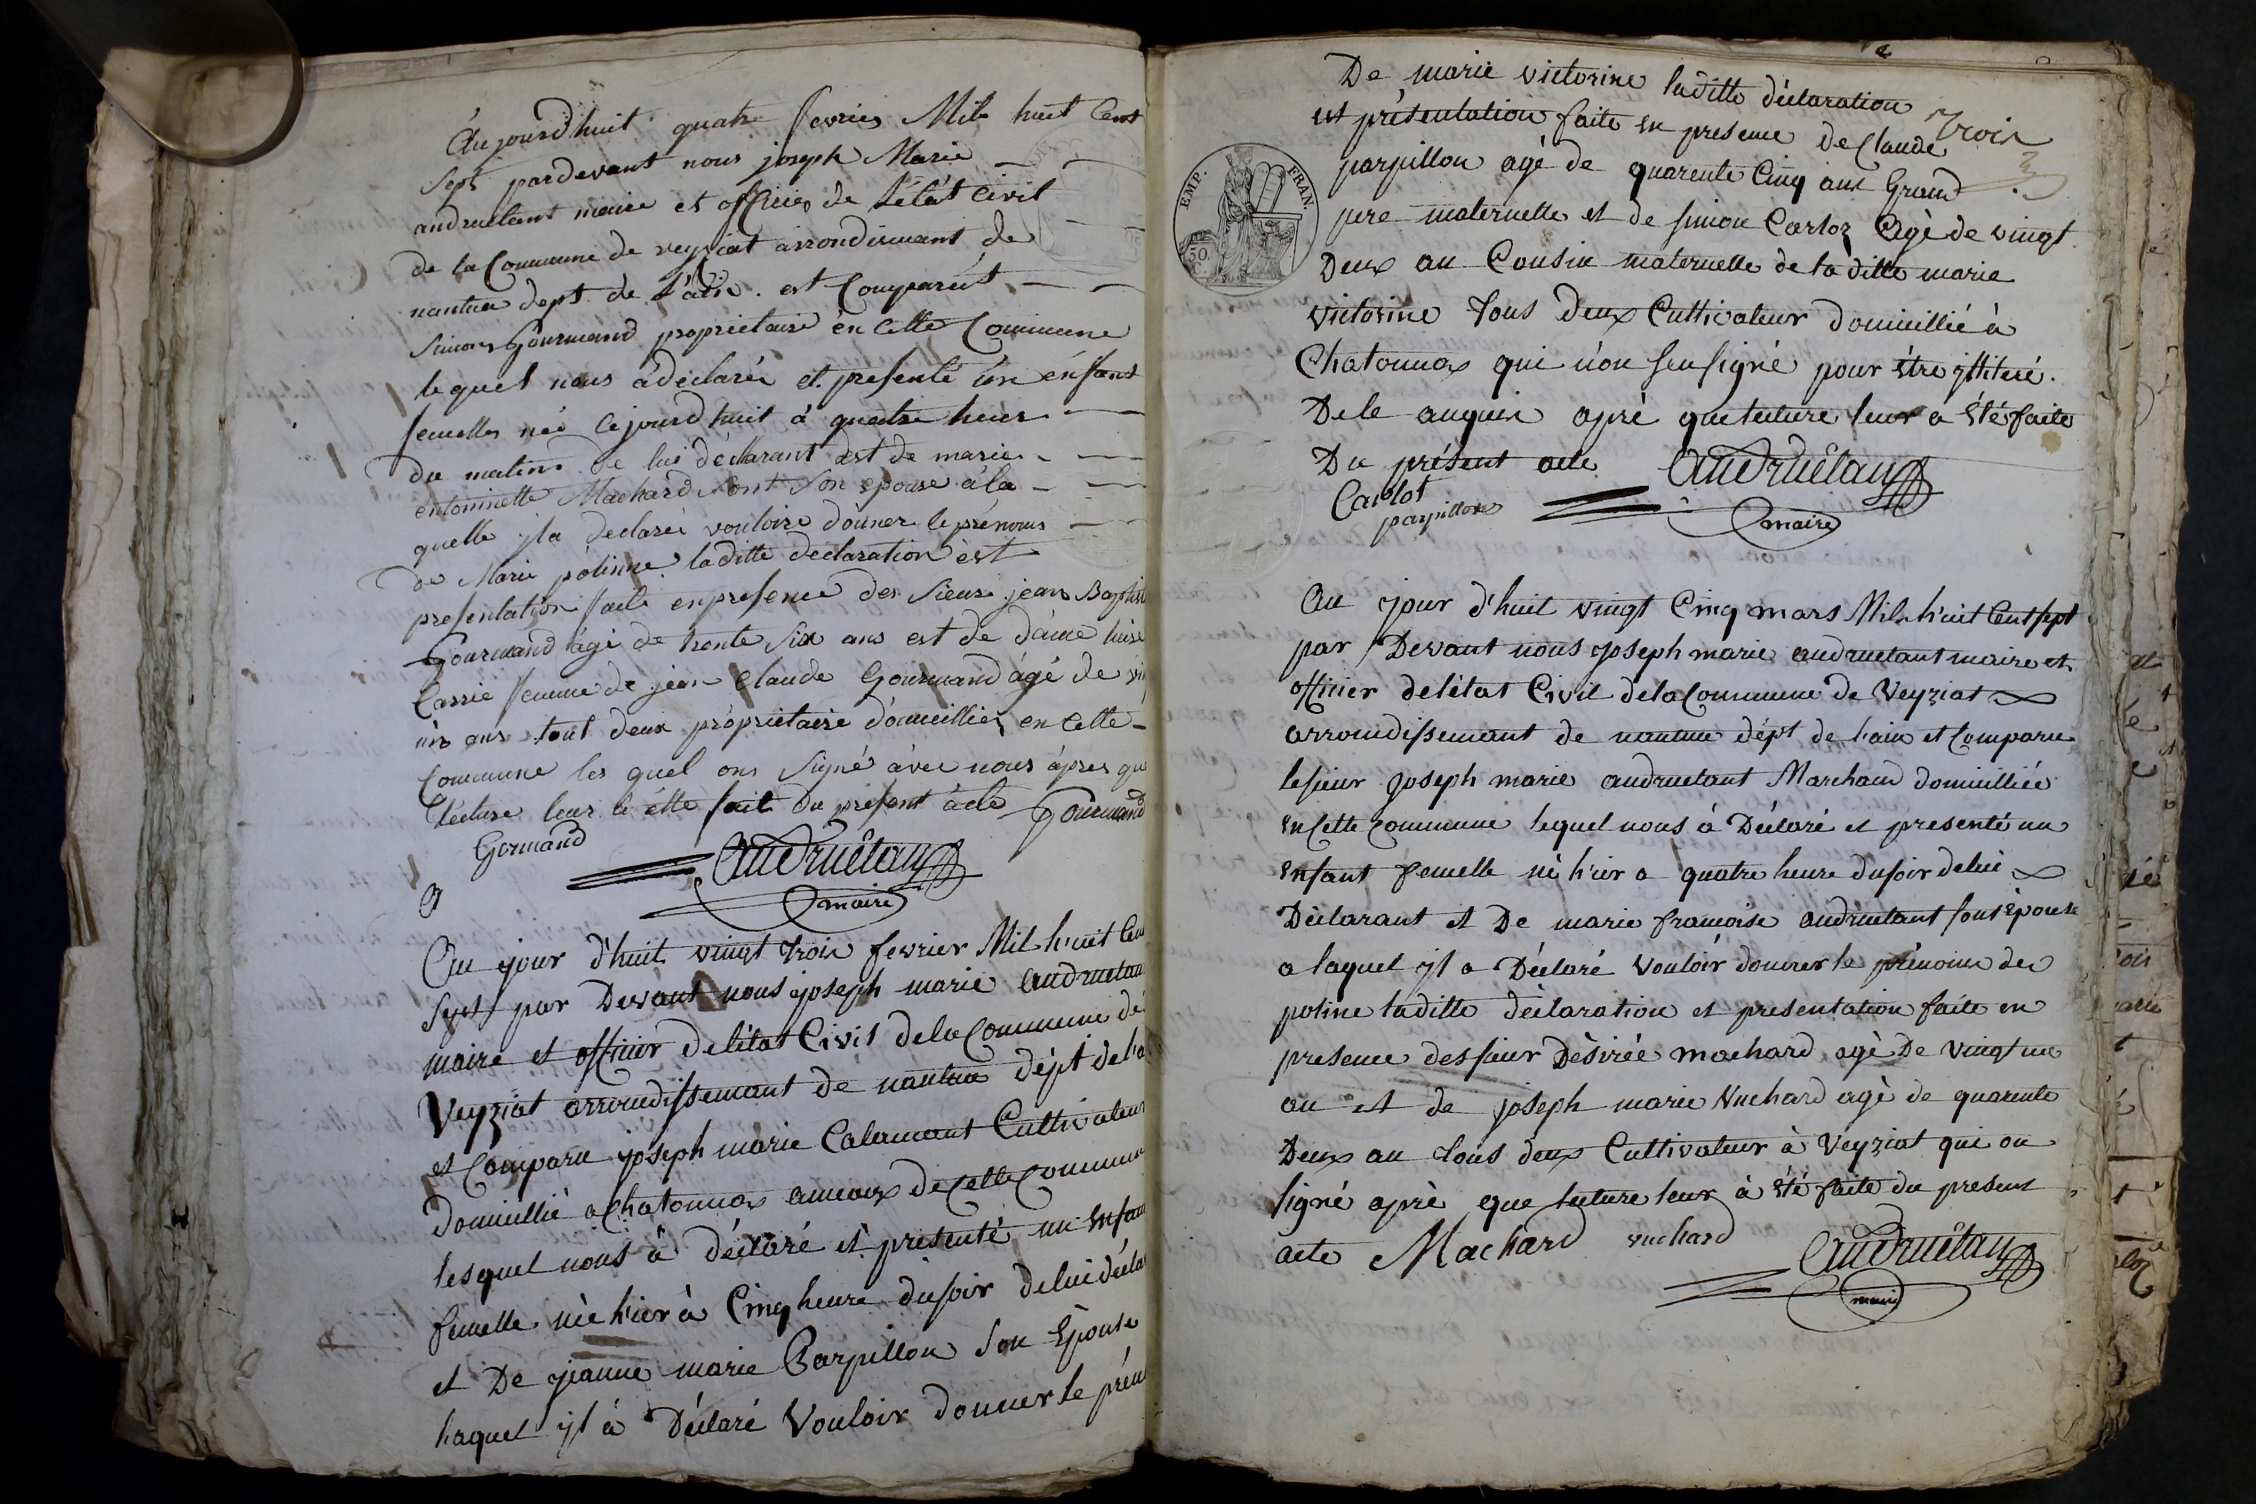 Aujourdhuit quatre fevrier Mil huit Cent
Sept pardevant nous joseph Marie
andruetant maire et officier de l'état Civil
de la Commune de veyziat arrondissement de
nantua dept de l'ain. est Comparut
Simon Gourmand propriétaire en Cette Commune
lequel nous à declaréé et presenté un énfant
femelles néé Cejourdhuit à quatre heur
du matins de lui déclarant est de marie
entoninette Machard sont Son épouse à la
quelle jla declaréé vouloire donner le prénoms
de Marie poline laditte declaration est
presentation faite enpresence des sieurs jean Baptis
Gourmand âgé de trente Six ans est de dame luise
Carrié femme de jean Claude Gourmand âgé de vin
un ans tout deux propriétaire domeilliés en Cette
Commune les quel ons Signé àvec nous àpres que
lecture leur à étte fait du présent àcte Gourmand
Gormand
Andruétan
maire
Au jour d'huit vingt trois fevrier Mil h'uit Cen
Sept par Devant nous joseph marie andruetan
maire et officier delétat Civil dela Commune de
Veyziat arrondissemant de nantua dépt de l'a
et Comparu joseph marie Calamant Cultivateur
domeillié a Chatonnax ameaux de Cette Commune
lesquel nous à déclaré et presenté un enfan
femelle née h'ier à Cinq heure dusoir delui décla
et De jeanne marie Parpillon son Epouse
laquel jl à Déclaré Vouloir donner le prén
De marie victorine laditte déclaration
et présentation faite en presence de Claude
Trois
3
parpillon agé de quarente Cinq ans Grand
pere maternelle et de simon Carloz agé de vingt
Deux an Cousin maternelle de laditte marie
victorine tous Deux Cultivateur domeillié à
Chatonnax qui n'on seu signé pour être jlliteré.
Dele anquis apré que lecture leur a été faite
Du présent acte
Andruétan
Carlot
parpillon
maire
EMP. FRAN.
50
Au jour d'huit vingt Cinq mars Mil h'uit Cent sept
par Devant nous joseph marie andruetant maire et
officier delétat Civil dela Commune de Veyziat
arrondissemant de nantua dépt de l'ain et Comparu
lesieur joseph marie andruetant Marchand domeilliée
en Cette Commune lequel nous à Déclaré et presenté un
enfant femelle né h'ier a quatre heure dusoir delui
Déclarant et De marie francoise andruetant sont épouse
a laquel jl a Déclaré Vouloir donner le prénoms de
poline laditte déclaration et presentation faite en
presence des sieur Désirée machard agé De vingt un
an et de joseph marie Vuchard agé de quarente
Deux an tous deux Cultivateur à Veyziat qui on
signé apré que lecture leur à été faite du present
acte Machard vuchard Andruétan
maire